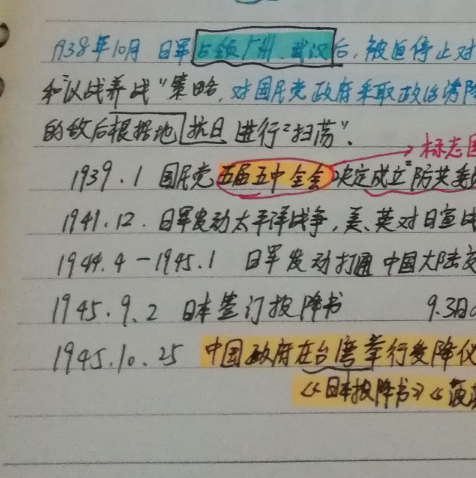 1938年10月 日军占领广州、武汉后，被迫停止对
和"以战养战"策略，对国民党政府采取政治诱降
的敌后根据地 抗日 进行"扫荡".
标志国
1939.1 国民党五届五中全会 决定成立"防共委
1941.12. 日军发动太平洋战争，美、英对日宣战
1944.4-1945.1 日军发动打通中国大陆交
1945.9.2 日本签订投降书 9.3日
1945.10.25 中国政府在台湾举行受降仪
《日本投降书》《菠